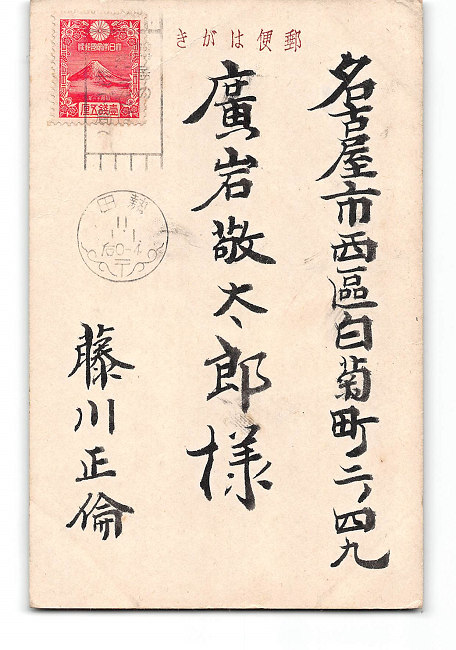 郵便はがき
名古屋市西區白菊町二ノ四九
廣岩敬太郎様
藤川正倫
壹錢五厘
熱田
11
1